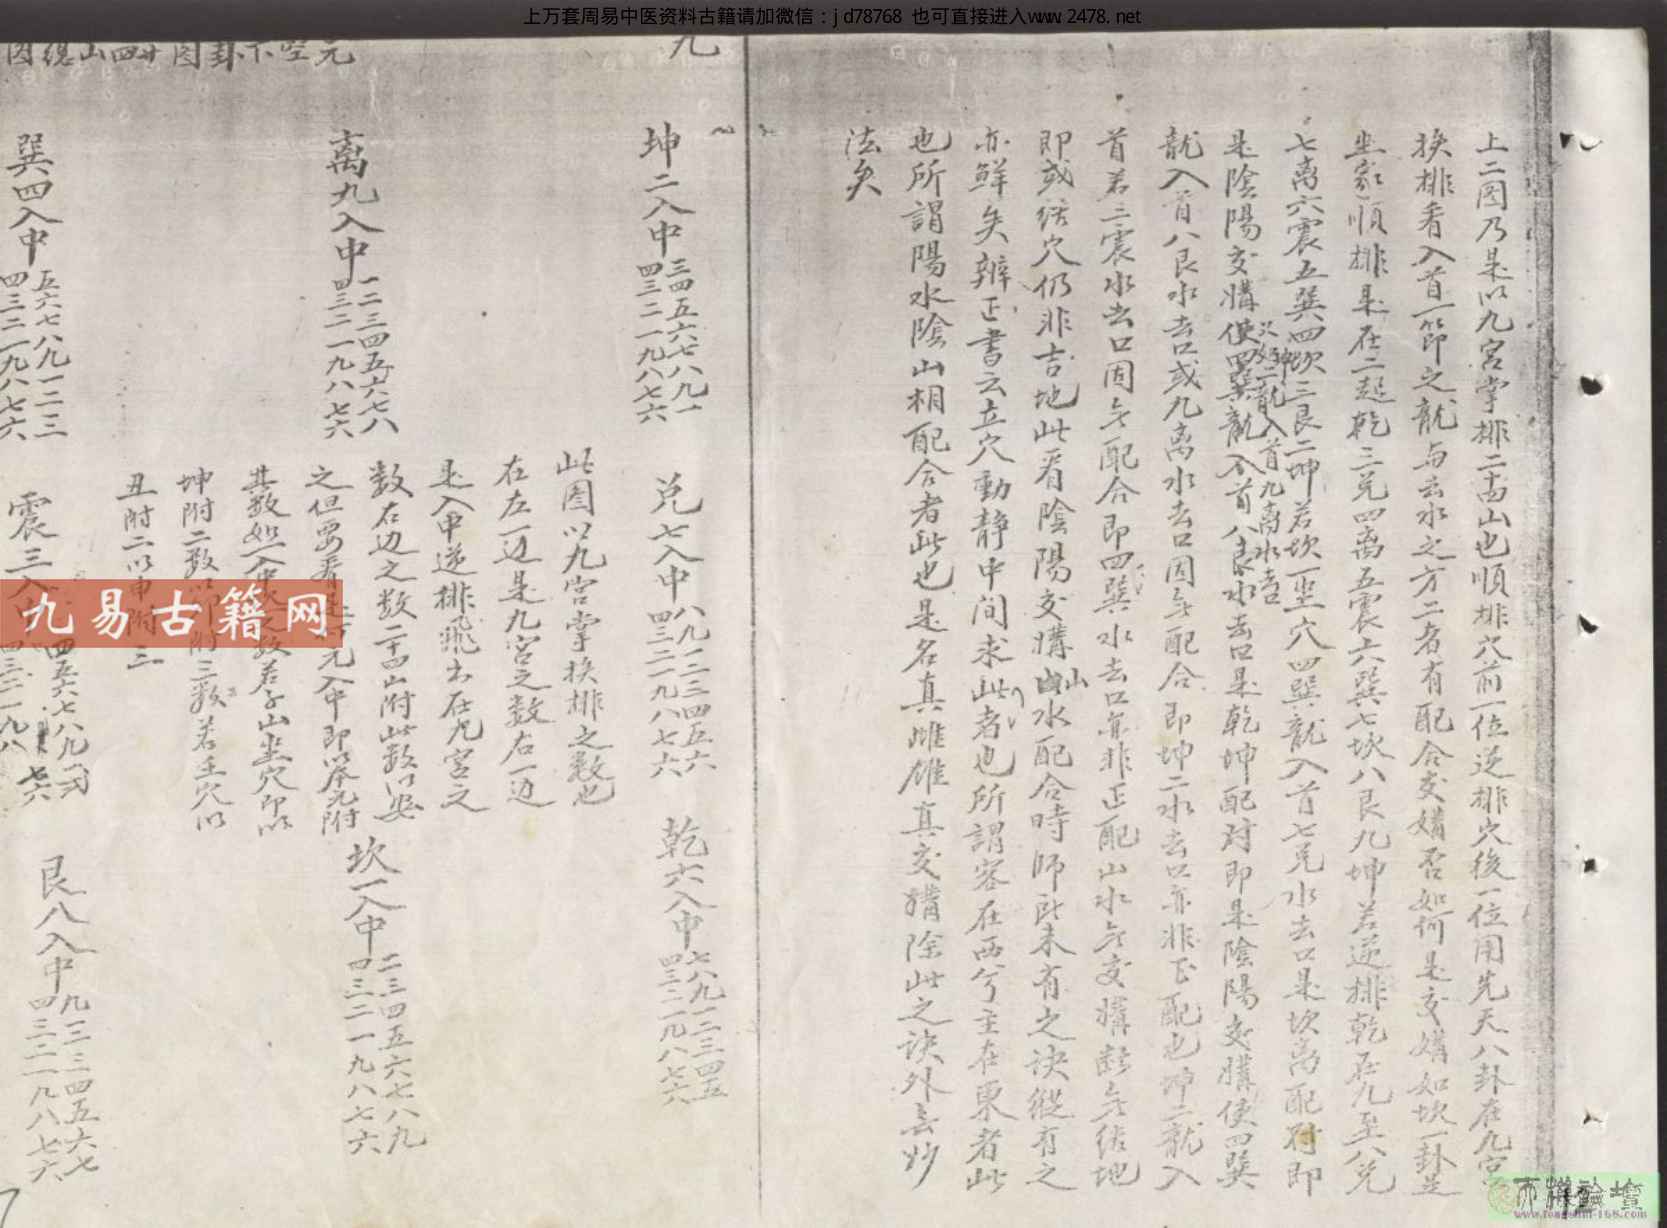 上万套周易中医资料古籍请加微信：jd78768 也可直接进入www.2478.net
上二图乃是以九宮掌排二十四山也順排穴前一位逆排穴後一位用先天八卦在九宮
换排看入首一節之龍与去水之方二者有配合交媾否如何是交媾如坎一卦是
坐家順排是在二起乾三兑四離五震六巽七坎八艮九坤若逆排乾在九至八兑
七离六震五巽四坎三艮二坤若坎一坐穴四巽龍入首七兑水去口是坎离配对即
次如坤二龍入首九离水去口
是陰陽交媾使四巽龍入首八艮水去口是乾坤配对即是陰陽交媾使四巽
龍入首八艮水去口或九离水去口因无配合即坤二水去口亦非正配也坤二龍入
首若三震水去口固无配合即四巽水去口亦非正配山水无交媾断无结地
即或结穴仍非吉地此看陰陽交媾山水配合時师此未有之诀縱有之
亦鮮矣辨正書云立穴動静中间求此者也所謂客在西兮主在東者此
也所謂陽水陰山相配合者此也是名真雌雄真交媾除此之诀外無妙
法矣
九
坤二入中
三四五六七八九一
四三二一九八七六
兑七入中
八九一二三四五六
四三二一九八七六
乾六入中
七八九一二三四五
四三二一九八七六
此图以九宫掌换排之数也
在左一边是九宫之数右一边
是入中逆排飛出在九宫之
数右边之数二十四山附此数以安
之但要看以元入中即以本元附
其数如一入中之数若子山坐穴即以
坤附二数以附三数若壬穴以
丑附二以申附三
離九入中
一二三四五六七八
四三二一九八七六
坎一入中
二三四五六七八九
四三二一九八七六
元空下卦图廿四山總图
巽四入中
五六七八九一二三
四三二一九八七六
震三入中
四五六七八九一
四三二一九八七六
艮八入中
九一二三四五六七
四三二一九八七六
九易古籍网